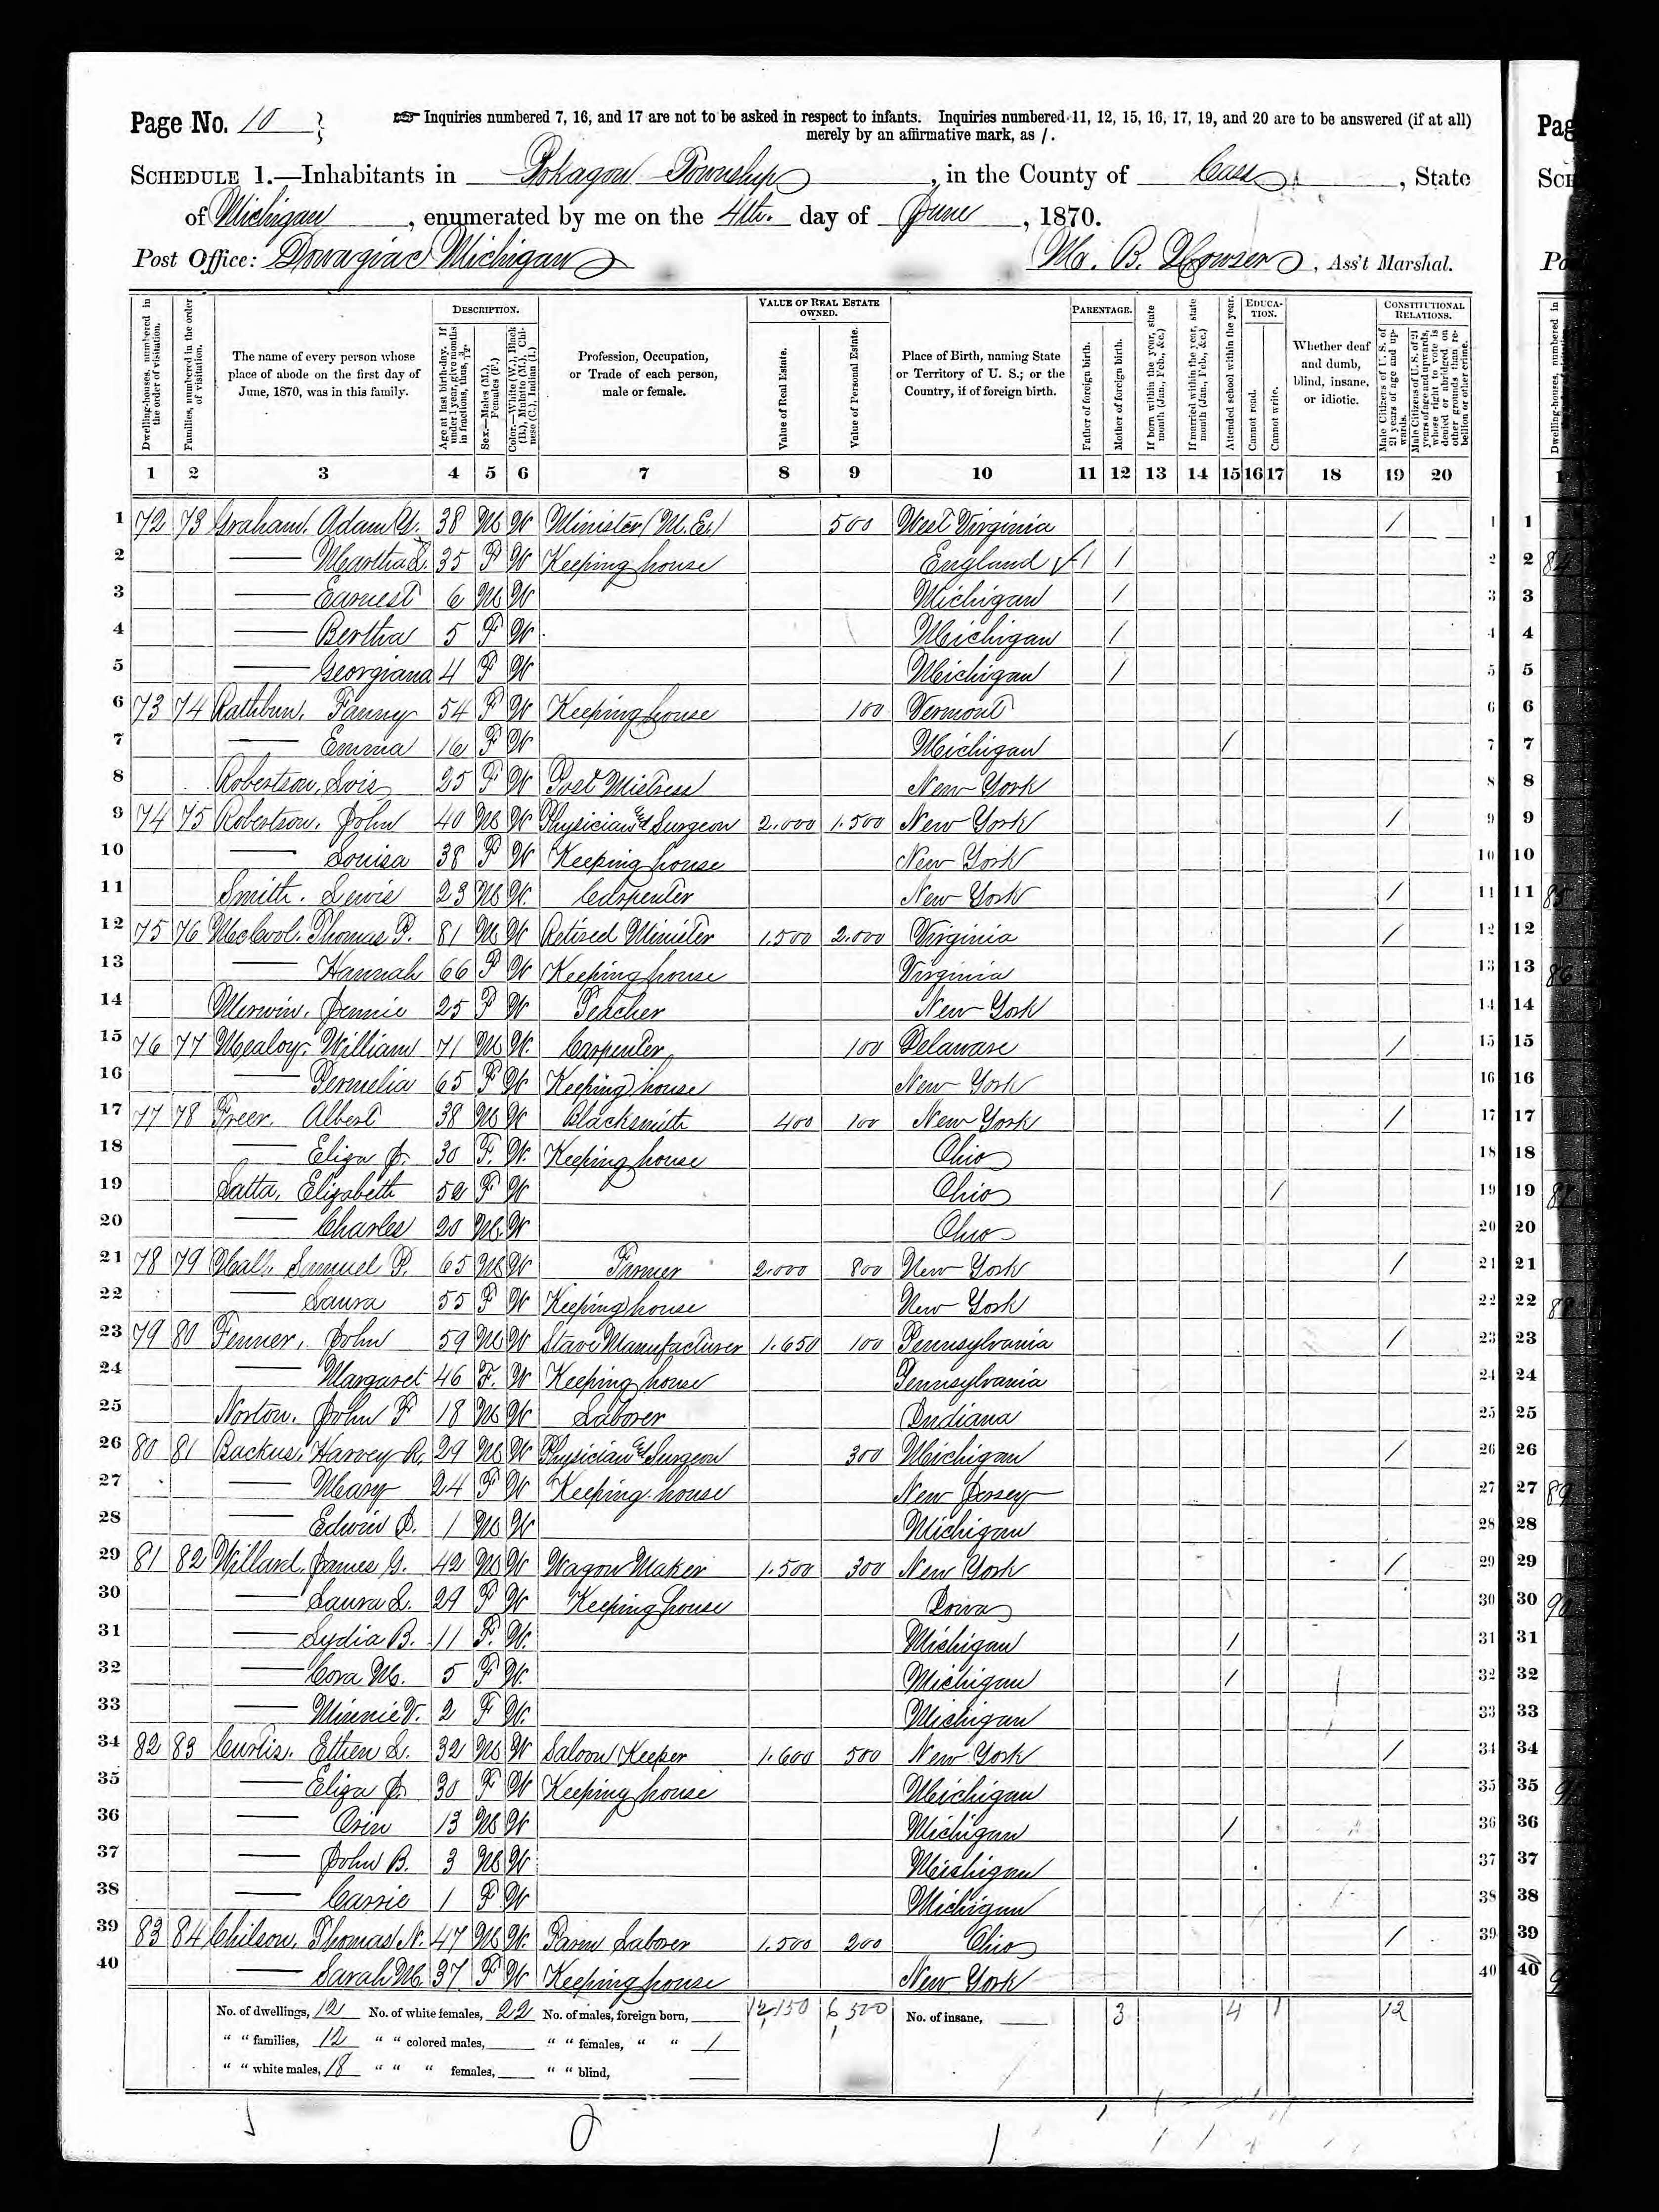 Page No. 10
Inquiries numbered 7, 16, and 17 are not to be asked in respect to infants. Inquiries numbered 11, 12, 15, 16, 17, 19, and 20 are to be answered (if at all)
merely by an affirmative mark, as /.
SCHEDULE 1.—Inhabitants in Pokagon Township, in the County of Cass, State
of Michigan, enumerated by me on the 4th. day of June, 1870.
Post Office: Dowagiac Michigan
B. , Ass't Marshal.
Dwelling-houses, numbered in the order of visitation.
Families, numbered in the order of visitation.
The name of every person whose place of abode on the first day of June, 1870, was in this family.
DESCRIPTION.
Age at last birth-day. If under 1 year, give months in fractions, thus, 3/12.
Sex.—Males (M.), Females (F.)
Color.—White (W.), Black (B.), Mulatto (M.), Chinese (C.), Indian (I.)
Profession, Occupation, or Trade of each person, male or female.
VALUE OF REAL ESTATE OWNED.
Value of Real Estate.
Value of Personal Estate.
Place of Birth, naming State or Territory of U. S.; or the Country, if of foreign birth.
PARENTAGE.
Father of foreign birth.
Mother of foreign birth.
If born within the year, state month (Jan., Feb., &c.)
If married within the year, state month (Jan., Feb., &c.)
Attended school within the year.
EDUCATION.
Cannot read.
Cannot write.
Whether deaf and dumb, blind, insane, or idiotic.
CONSTITUTIONAL RELATIONS.
Male Citizens of U. S. of 21 years of age and upwards.
Male Citizens of U. S. of 21 years of age and upwards, whose right to vote is denied or abridged on other grounds than rebellion or other crime.
1 2 3 4 5 6 7 8 9 10 11 12 13 14 15 16 17 18 19 20
1 72 73 Graham, Adam Y. 38 M W Minister (M.E.) 500 West Virginia / 1
2 — Martha L. 35 F W Keeping house England / / 2
3 — Earnest 6 M W Michigan / 3
4 — Bertha 5 F W Michigan / 4
5 — Georgiana 4 F W Michigan / 5
6 73 74 Rathbun, Fanny 54 F W Keeping house 100 Vermont 6
7 — Emma 16 F W Michigan / 7
8 Robertson, Lois 25 F W Post Mistress New York 8
9 74 75 Robertson, John 40 M W Physician & Surgeon 2.000 1.500 New York / 9
10 — Louisa 38 F W Keeping house New York 10
11 Smith, Lewis 23 M W. Carpenter New York / 11
12 75 76 McCool, Thomas P. 81 M W Retired Minister 1.500 2.000 Virginia / 12
13 — Hannah 66 F W Keeping house Virginia 13
14 Merwin, Jennie 25 F W Teacher New York 14
15 76 77 Mealoy, William 71 M W. Carpenter 100 Delaware / 15
16 — Permelia 65 F W Keeping house New York 16
17 77 78 Freer, Albert 38 M W Blacksmith 400 100 New York / 17
18 — Eliza J. 30 F. W. Keeping house Ohio 18
19 Latta, Elizabeth 52 F W Ohio / 19
20 — Charles 20 M W Ohio 20
21 78 79 Hall, Samuel P. 65 M W Farmer 2.000 800 New York / 21
22 — Laura 55 F W Keeping house New York 22
23 79 80 Fenner, John 59 M W Stave Manufacturer 1.650 100 Pennsylvania / 23
24 — Margaret 46 F. W Keeping house Pennsylvania 24
25 Norton, John F 18 M W Laborer Indiana 25
26 80 81 Backus, Harvey R. 29 M W Physician & Surgeon 300 Michigan / 26
27 — Mary 24 F W Keeping house New Jersey 27
28 — Edwin J. 1 M W Michigan 28
29 81 82 Willard, James G. 42 M W Wagon Maker 1.500 300 New York / 29
30 — Laura L. 29 F W Keeping house Iowa 30
31 — Lydia B. 11 F. W. Michigan / 31
32 — Cora M. 5 F W. Michigan / 32
33 — Minnie V. 2 F W. Michigan 33
34 82 83 Curtis, Ethen L. 32 M W Saloon Keeper 1.600 500 New York / 34
35 — Eliza J. 30 F W Keeping house Michigan 35
36 — Orin 13 M W Michigan / 36
37 — John B. 3 M W Michigan 37
38 — Carrie 1 F W Michigan 38
39 83 84 Chilson, Thomas N. 47 M W. Farm Laborer 1.500 200 Ohio / 39
40 — Sarah M. 37 F W Keeping house New York 40
No. of dwellings, 12 No. of white females, 22 No. of males, foreign born, 12,150 6,500 No. of insane, 3 4 1 12
" " families, 12 " " colored males, " " females, " " 1
" " white males, 18 " " " females, " " blind,